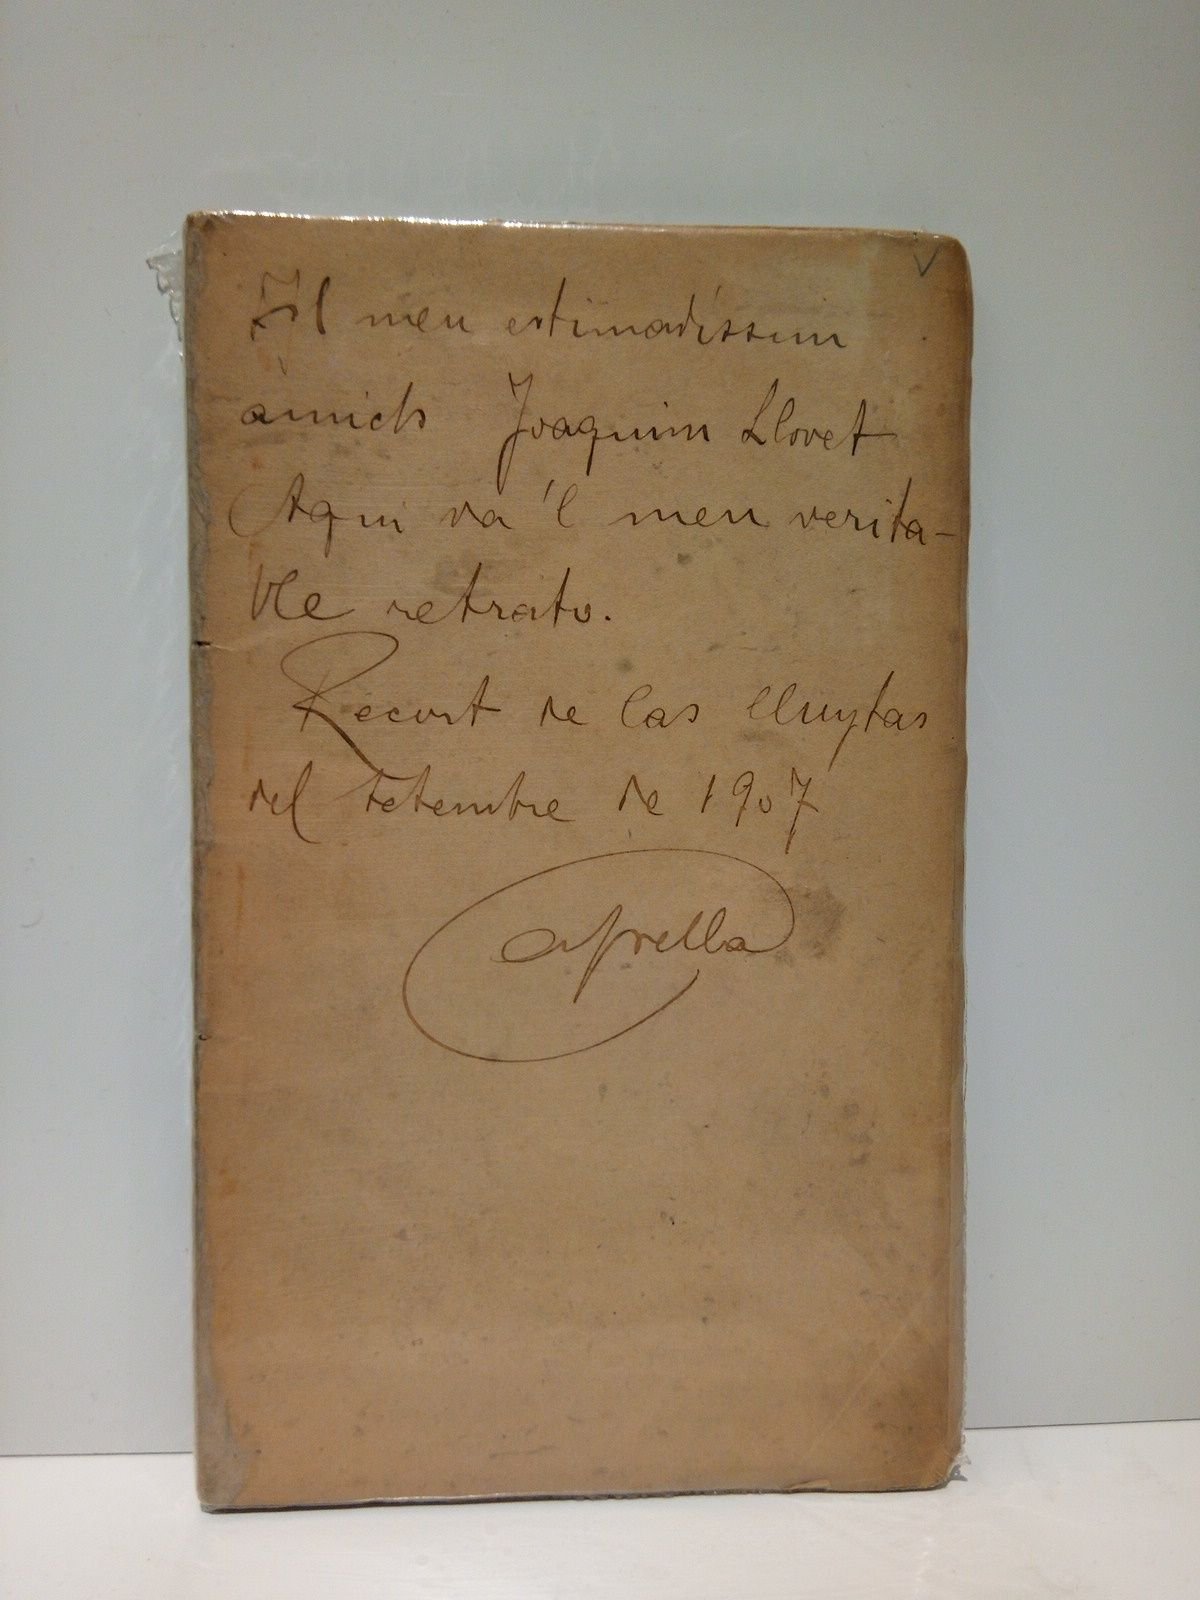 Al meu estimadíssim
amich Joaquim Llovet
Aqui va 'l meu verita-
ble retrato.
Recort de las lluytas
del Setembre de 1907